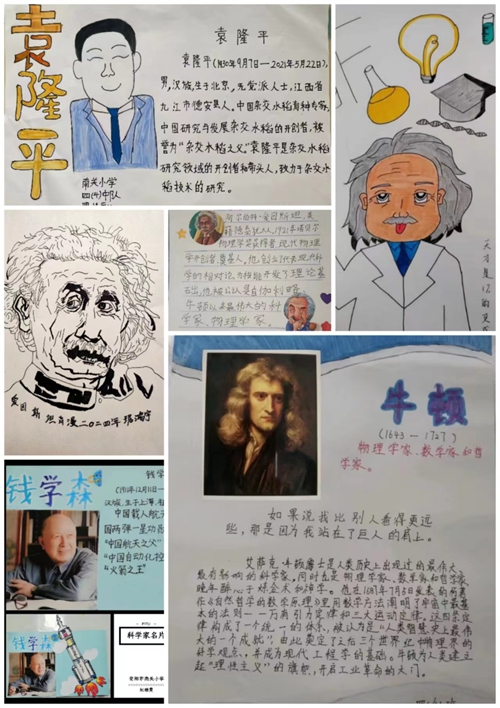 袁隆平
袁隆平
袁隆平(1930年9月7—2021年5月22日),
男,汉族,生于北京,无党派人士,江西省
九江市德安县人。中国杂交水稻育种专家,
中国研究与发展杂交水稻的开创者,被
誉为“杂交水稻之父”。袁隆平是杂交水稻
研究领域的开创者和带头人,致力于杂交水
稻技术的研究。
南关小学
中队
阿尔伯特·爱因斯坦,美
籍德裔犹太人,1921年诺贝尔
物理学奖获得者,现代物理
学开创者、奠基人。他创立了代表现代科
学的相对论,为核能开发了理论基
础,他被公认是自伽利略、
牛顿以来最伟大的科
学家、物理学家。
爱因斯坦肖漫二〇二四年
钱学森
钱学
(1911年12月11日—
汉族,生于上海,
中国载人航天
国两弹一星功
“中国航天之父”
“中国自动化控
“火箭之王”
钱学森
科学家名片
牛顿
(1643—1727)
物理学家、数学家和哲
学家。
如果说我比别人看得更远
些,那是因为我站在了巨人的肩上。
艾萨克·牛顿爵士是人类历史上出现过的最伟大、
最有影响的科学家,同时也是物理学家、数学家和哲学家,
晚年醉心于炼金术和神学。他在1687年7月5日发表的
《自然哲学的数学原理》里用数学方法阐明了宇宙中最基
本的法则——万有引力定律和三大运动定律。这四条定律
构成了一个统一的体系,被认为是“人类智慧史上最伟
大的一个成就”,由此奠定了之后三个世纪中物理界的
科学观点,并成为现代工程学的基础。牛顿为人类建立
起“理性主义”的旗帜,开启工业革命的大门。